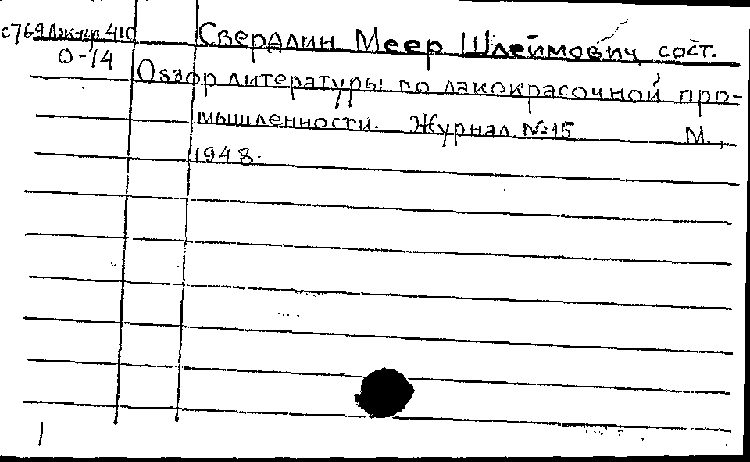 Свердлин Меер Шлеймович, сост.
О-14
Обзор литературы по лакокрасочной про-
мышленности. Журнал №15 М.,
1948.